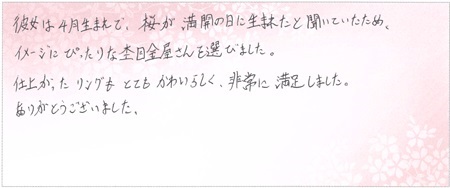 彼女は4月生まれで、桜が満開の日に生まれたと聞いていたため、
イメージにぴったりな杢目金屋さんを選びました。
仕上がったリングもとてもかわいらしく、非常に満足しました。
ありがとうございました。